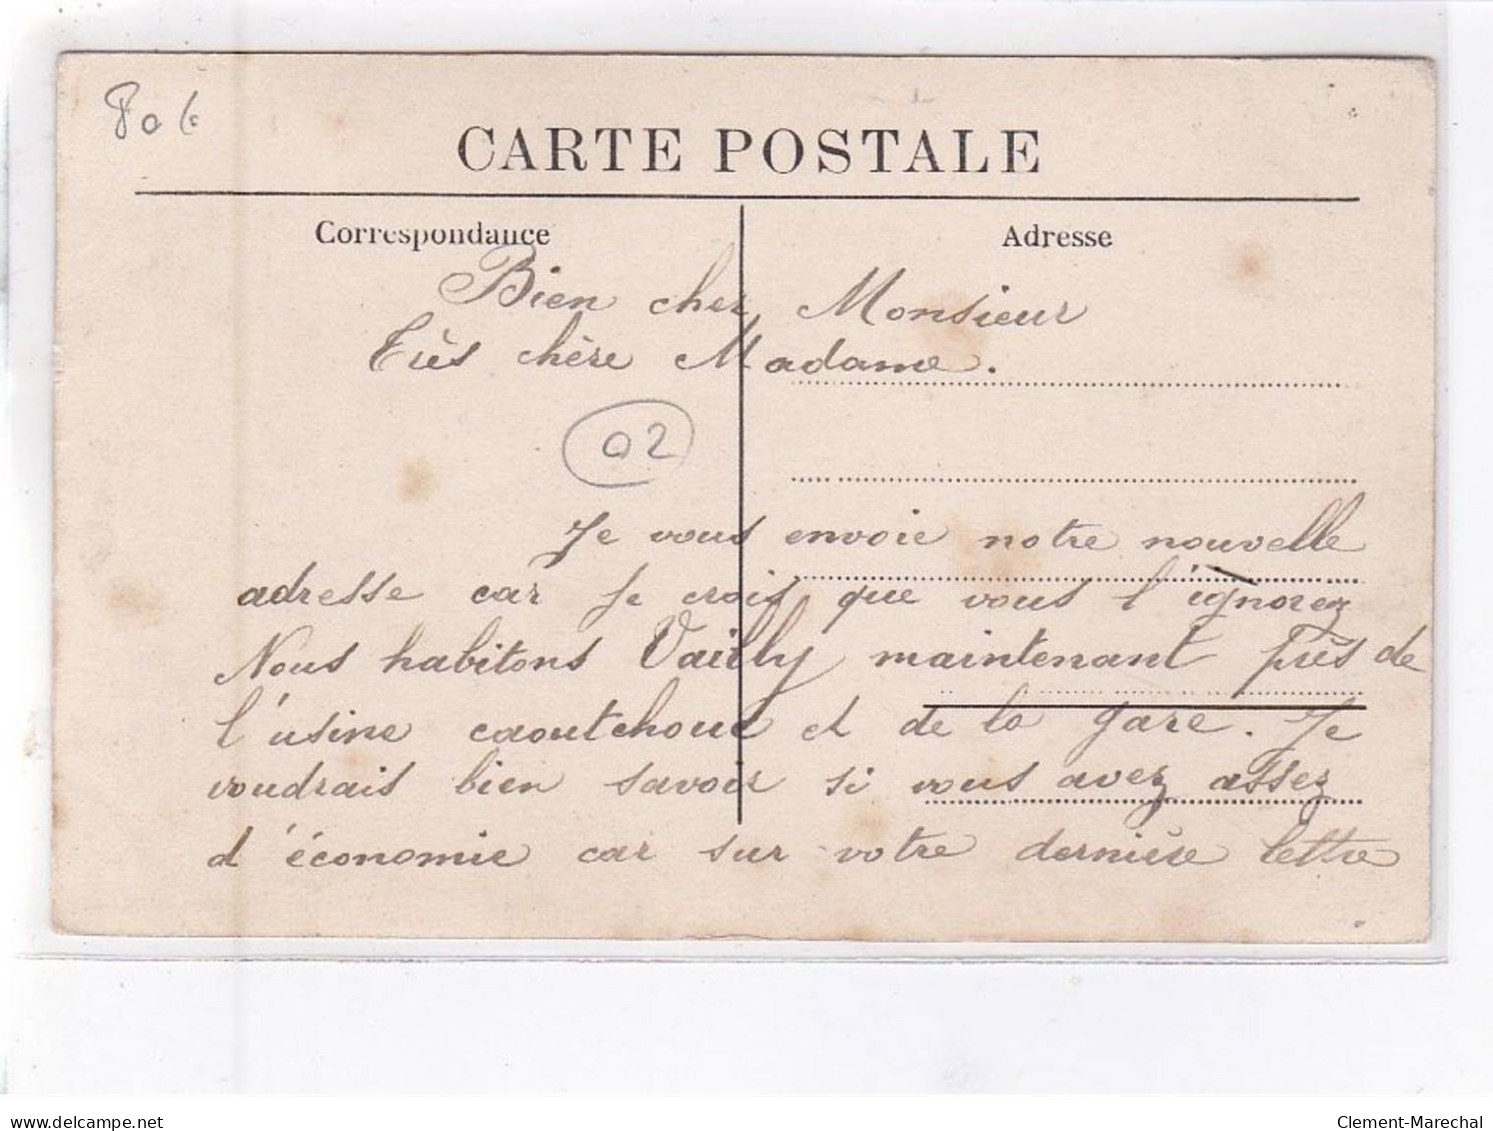 80 €
CARTE POSTALE
Correspondance
Adresse
Bien cher Monsieur
Très chère Madame.
02
Je vous envoie notre nouvelle
adresse car je crois que vous l'ignorez
Nous habitons Vailly maintenant près de
l'usine caoutchouc et de la gare. Je
voudrais bien savoir si vous avez assez
d'économie car sur votre dernière lettre
www.delcampe.net
Clement-Marechal